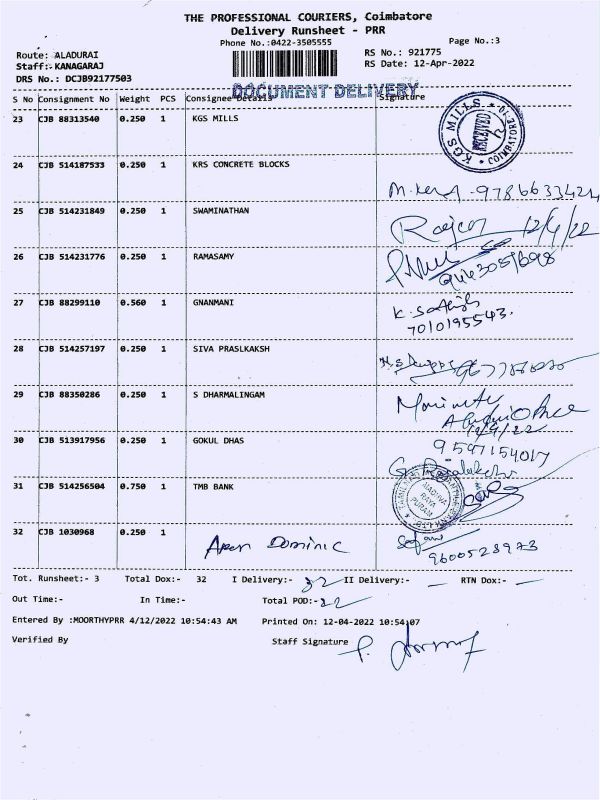 THE PROFESSIONAL COURIERS, Coimbatore
Delivery Runsheet - PRR
Phone No.:0422-3505555
Page No.:3
Route: ALADURAI
RS No.: 921775
Staff:- KANAGARAJ
RS Date: 12-Apr-2022
DRS No.: DCJB92177503
DOCUMENT DELIVERY
S No Consignment No Weight PCS Consignee Details Signature
23 CJB 88313540 0.250 1 KGS MILLS
KGS MILLS RECEIVED COIMBATORE-10
24 CJB 514187533 0.250 1 KRS CONCRETE BLOCKS
25 CJB 514231849 0.250 1 SWAMINATHAN
12/4/22
26 CJB 514231776 0.250 1 RAMASAMY
27 CJB 88299110 0.560 1 GNANMANI
K. Sathish
7010195543.
28 CJB 514257197 0.250 1 SIVA PRASLKAKSH
29 CJB 88350286 0.250 1 S DHARMALINGAM
12/4/22
30 CJB 513917956 0.250 1 GOKUL DHAS
9597154017
31 CJB 514256504 0.750 1 TMB BANK
32 CJB 1030968 0.250 1
Arun Dominic
9600528973
Tot. Runsheet:- 3 Total Dox:- 32 I Delivery:- 32 II Delivery:- — RTN Dox:- —
Out Time:- In Time:- Total POD:-
Entered By :MOORTHYPRR 4/12/2022 10:54:43 AM Printed On: 12-04-2022 10:54:07
Verified By Staff Signature